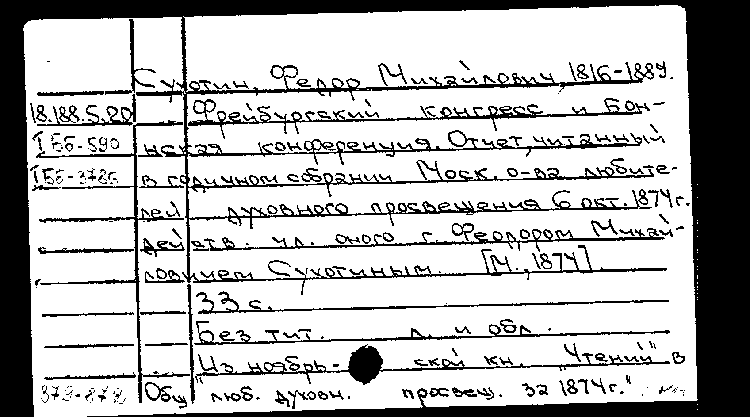 Сухотин, Федор Михайлович, 1816-1889.
18.188.5.20 Фрейбургский конгресс и Бон-
I 55-590 нская конференция. Отчет, читанный
I 55-378б в годичном собрании Моск. о-ва любите-
лей духовного просвещения 6 окт. 1874 г.
действ. чл. оного г. Феодором Михай-
ловичем Сухотиным. [М., 1874]
33 с.
Без тит. л. и обл.
Из ноябрь- ской кн. "Чтений" в
373-87 Общ. люб. духовн. просвещ. за 1874 г."